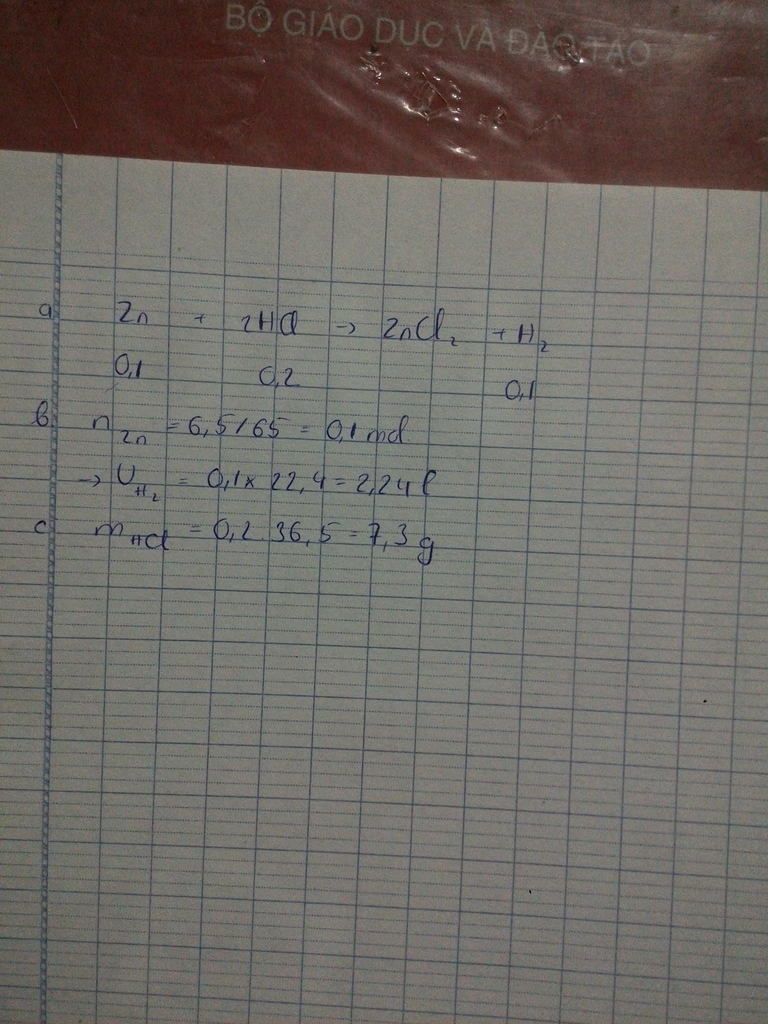 BỘ GIÁO DỤC VÀ ĐÀO TẠO
a) Zn + 2HCl → ZnCl₂ + H₂
0,1 0,2 0,1
b) n Zn = 6,5/65 = 0,1 mol
→ V H₂ = 0,1 x 22,4 = 2,24 l
c) m HCl = 0,2.36,5 = 7,3 g